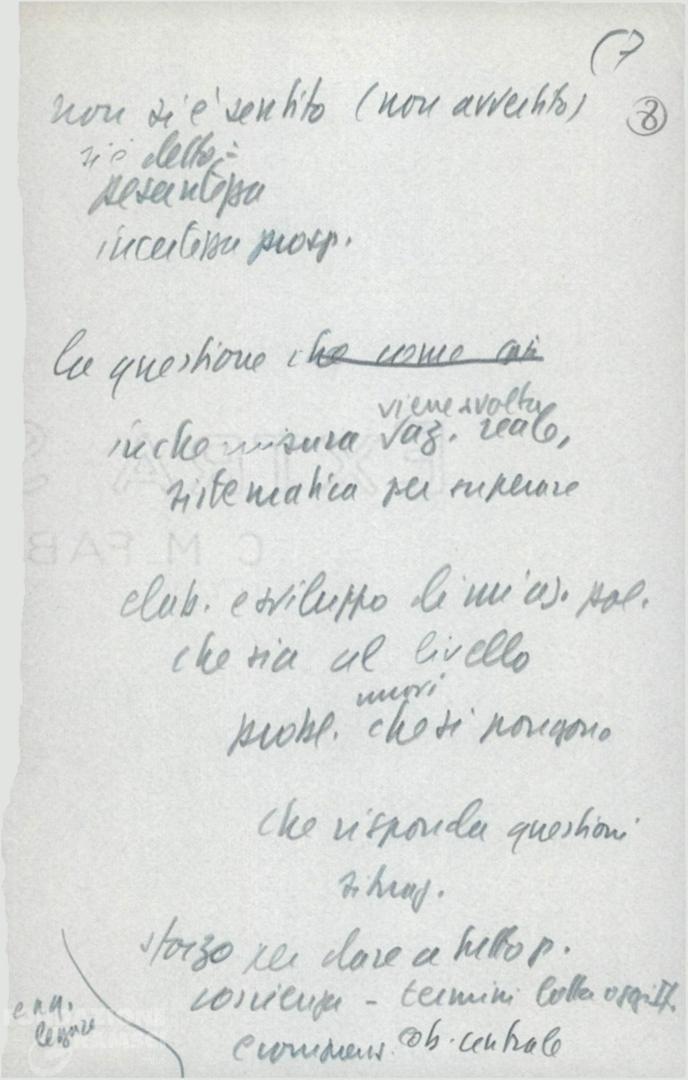 (7
8
non si è sentito (non avvertito)
si è detto:
pesantezza
incertezza prosp.
la questione che come
in che misura viene svolta az. reale,
sistematica per superare
elab. e sviluppo di iniz. pol.
che sia al livello
probl. nuovi che si pongono
che risponda questioni
situaz.
sforzo per dare a tutto p.
coscienza - termini lotta oggi
e ob. centrale
leggere